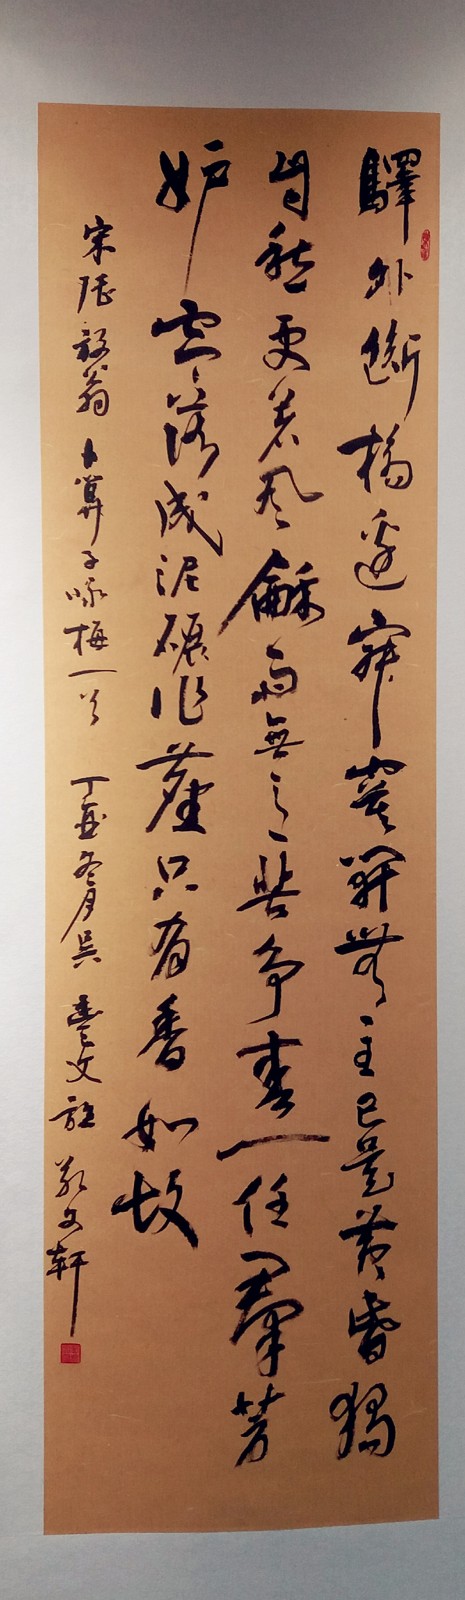 驛外斷橋邊寂寞開無主已是黃昏獨
自愁更著風龢雨無意苦爭春一任羣芳
妒零落成泥碾作塵只有香如故
宋陸放翁卜算子咏梅一首 丁酉冬月吳文於軒